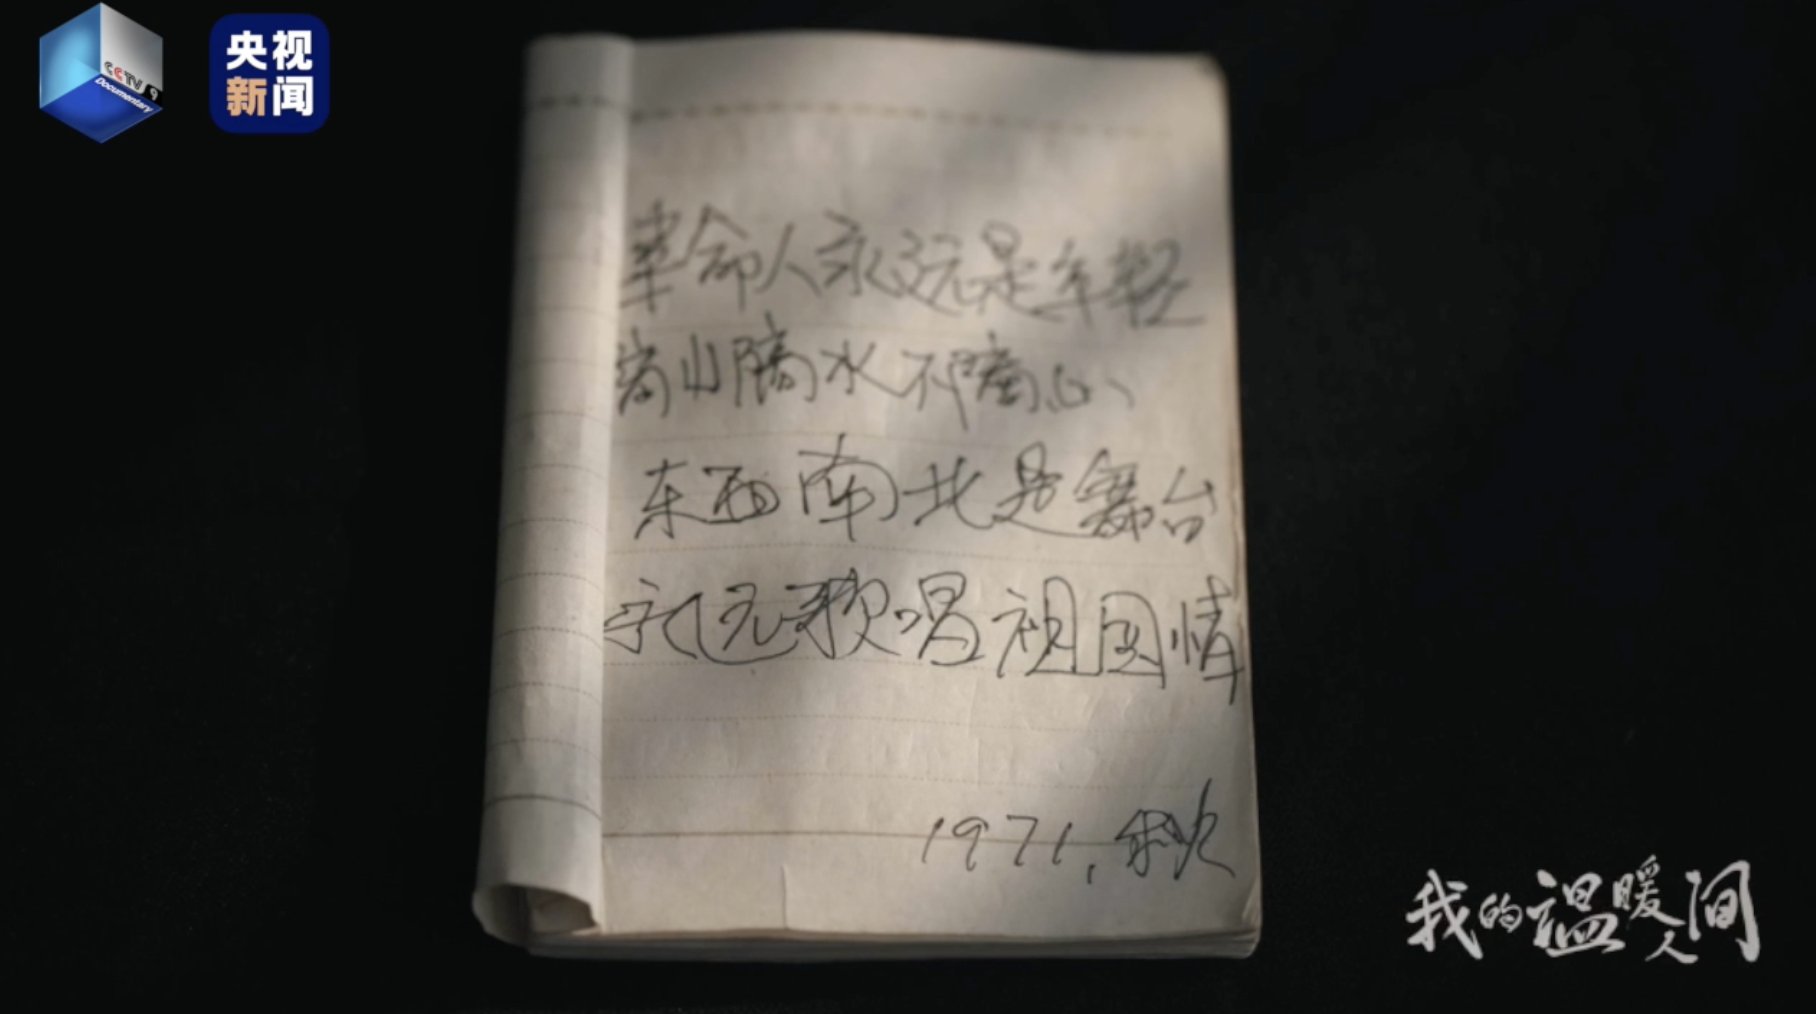 CCTV 9
Documentary
央视
新闻
革命人永远是年轻
山隔水不隔心
东西南北是舞台
永远歌唱祖国情
1971.秋
我的温暖人间